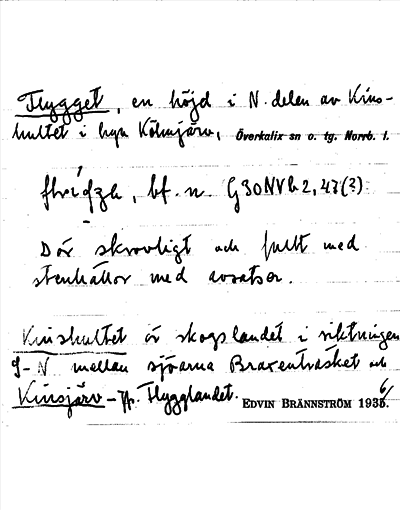 Flygget, en höjd i N. delen av Kins-
hultet i byn Kölmjärv, Överkalix sn o. tg. Norrb. l.
bf. n. G30NVh2,43(?)
Där skrovligt och fullt med
stenhällor med avsatser.
Kinshultet är skogslandet i riktningen
S-N mellan sjöarna Braxenträsket och
Kinsjärv - Jfr. Flygglandet.
EDVIN BRÄNNSTRÖM 1935. 6/